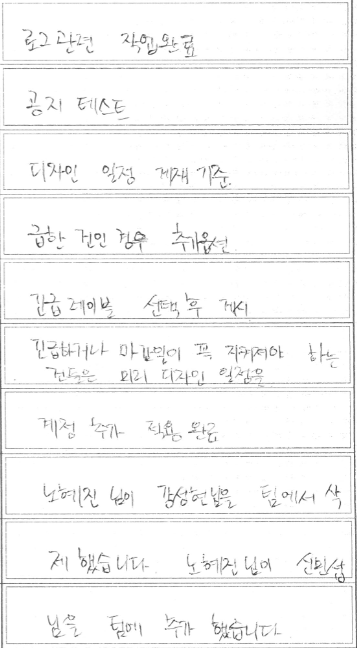 로그관련 작업완료
공지 테스트
디자인 일정 게재 기준.
급한 건인 경우 추가옵션
긴급 레이블 선택 후 게시
긴급하거나 마감일이 꼭 지켜져야 하는
건들은 미리 디자인 일정을
계정 추가 적용 완료
노혜진 님이 강성현님을 팀에서 삭
제 했습니다. 노혜진님이 신민섭
님을 팀에 추가 했습니다.